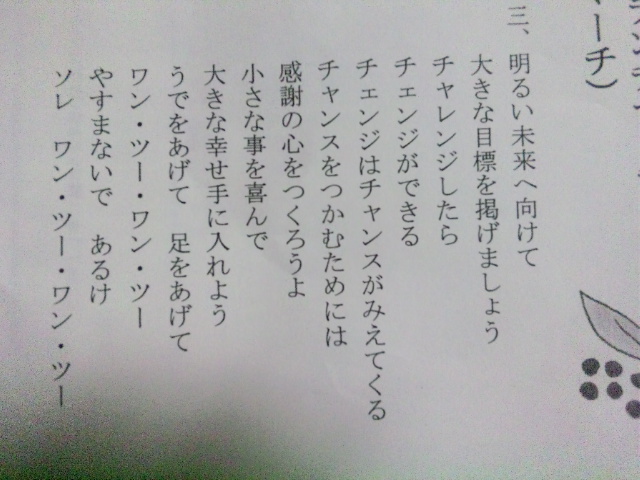 マーチ）
三、明るい未来へ向けて
大きな目標を掲げましょう
チャレンジしたら
チェンジができる
チェンジはチャンスがみえてくる
チャンスをつかむためには
感謝の心をつくろうよ
小さな事を喜んで
大きな幸せ手に入れよう
うでをあげて　足をあげて
ワン・ツー・ワン・ツー
やすまないで　あるけ
ソレ　ワン・ツー・ワン・ツー